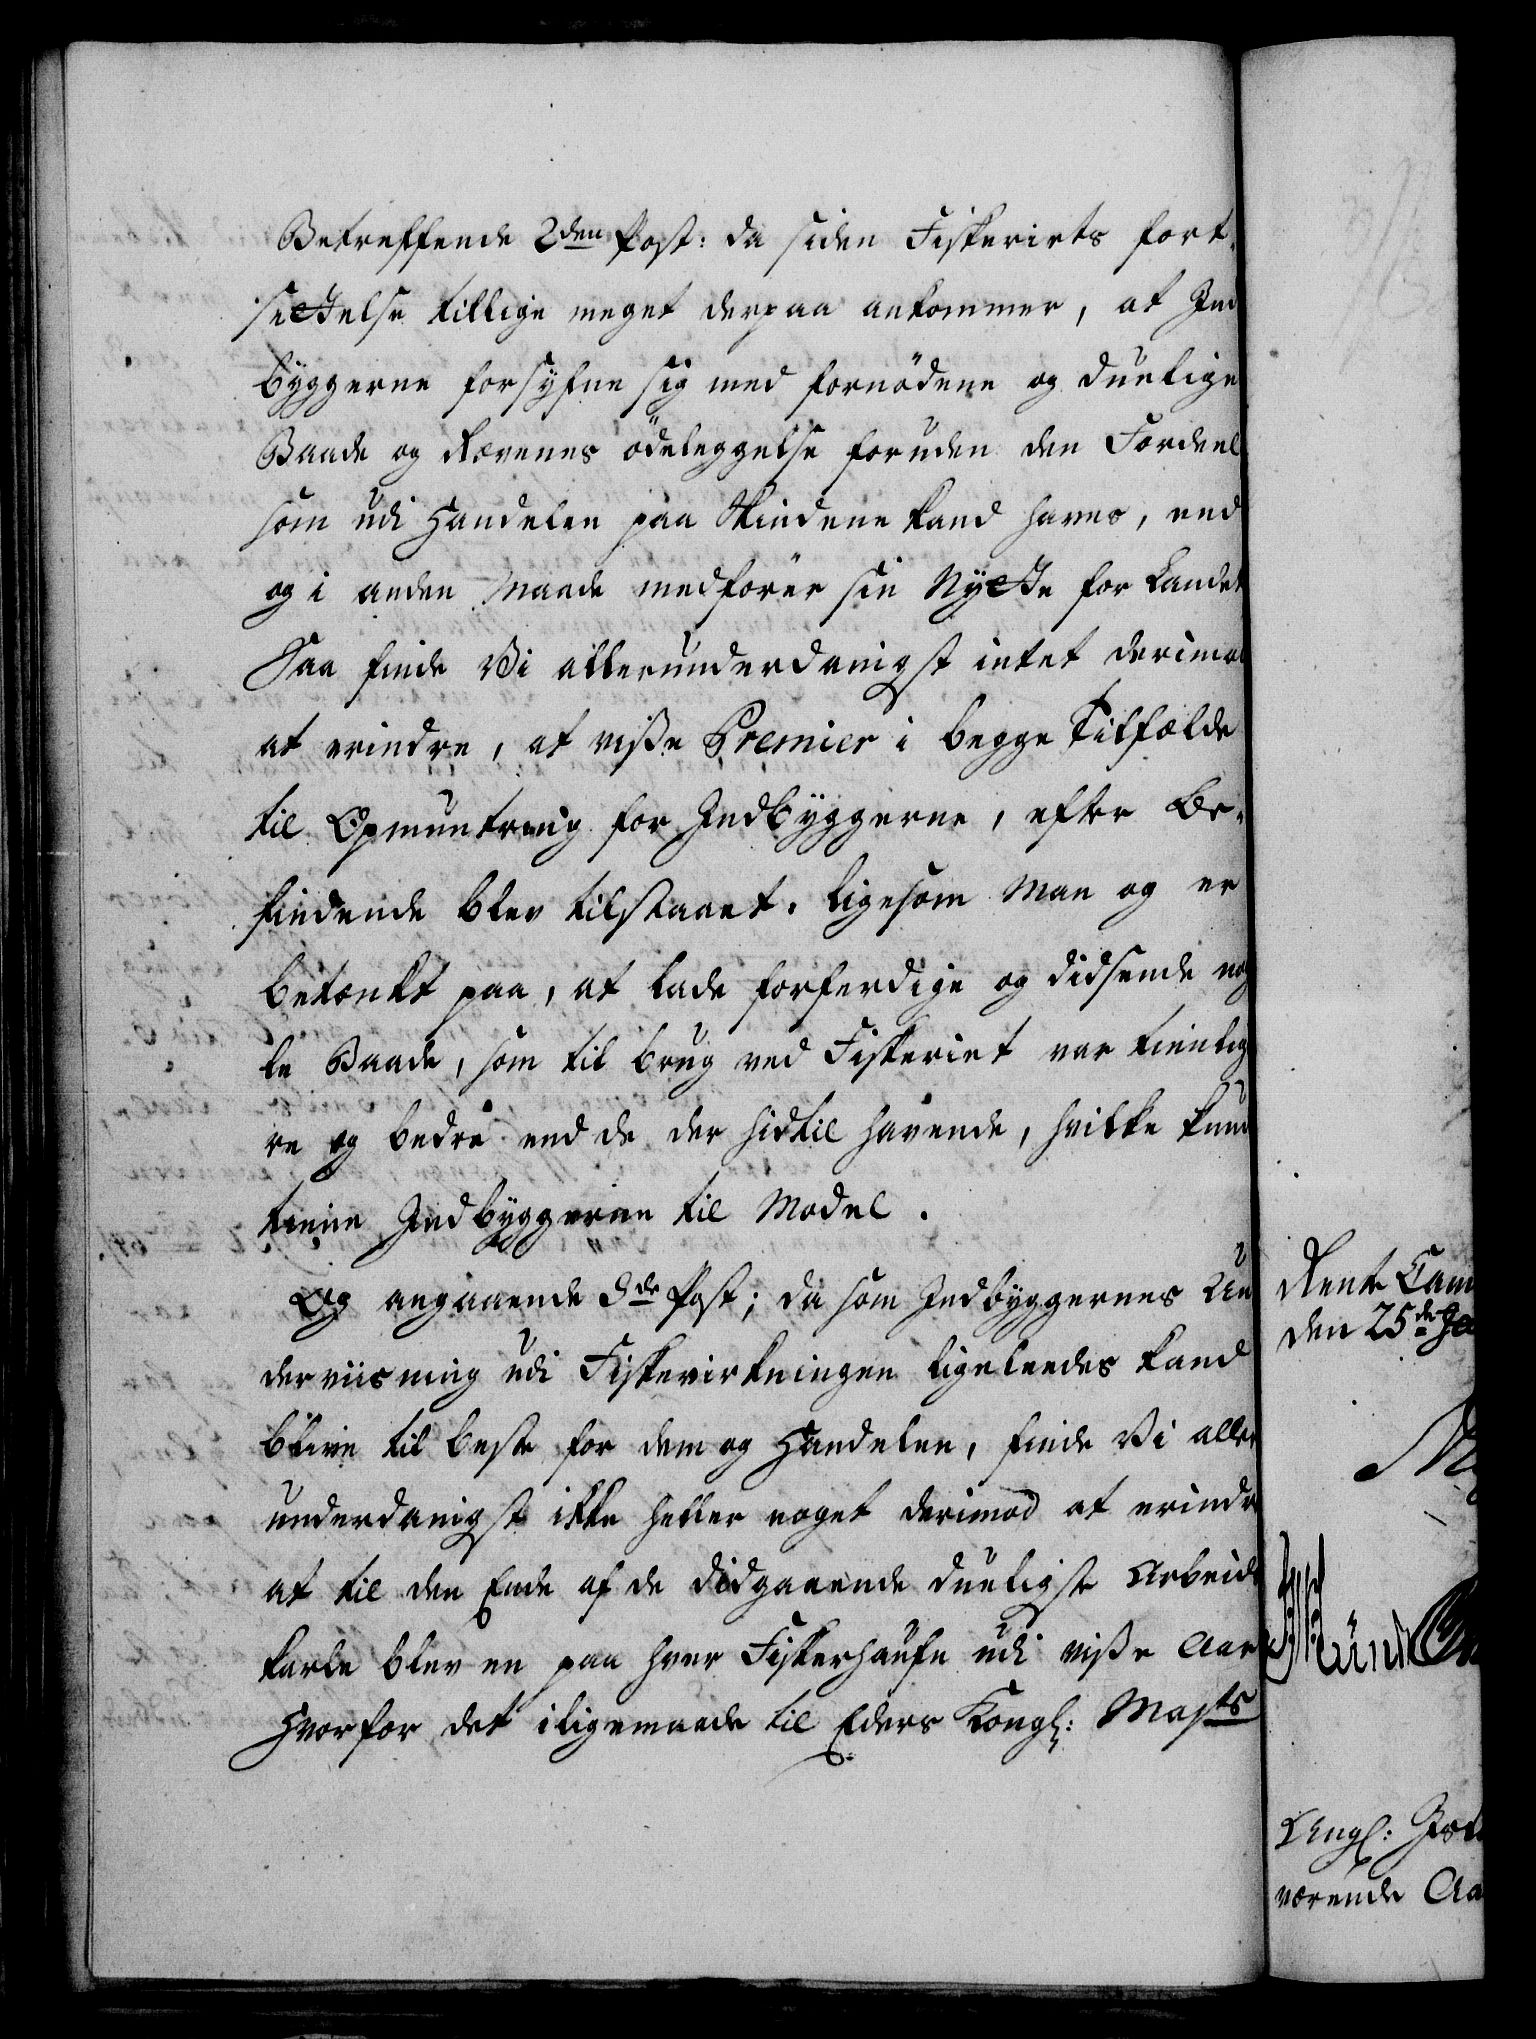 Betreffende 2den Post: da siden Fiskeriets fort-
settelse tillige meget derpaa ankommer, at Ind
byggerne forsyfne sig med fornödene og duelige
Baade og Rævenes ödeleggelse foruden den Fordeel
som udi Handelen paa Skindene kand haves, end
og i anden Maade medförer sin Nytte for Landet
Saa finde Vi allerunderdanigst intet derimod
at erindre, at visse Premier i begge Tilfælde
til Opmuntring for Indbyggerne, efter Be-
findende blev tilstaaet. ligesom Man og er
betænkt paa, at lade forferdige og didsende nog
le Baade, som til brug ved Fiskeriet var tienlig
re og bedre end de der hidtil havende, hvilke kund
tiene Indbyggerne til Model.
Og angaaende 3de Post; da som Indbyggernes Un
derviisning udi Fiskevirkningen ligeleedes kand
blive til beste for dem og Handelen, finde Vi aller
underdanigst ikke heller noget derimod at erindre
at til den Ende af de didgaaende dueligste Arbeids
karle blev en paa hver Fiskerhaufn udi visse Aar
Hvorfor det iligemaade til Eders Kongl: Mayts
Rente Cam
den 25de Ja
Kongl: Isl
værende Aa